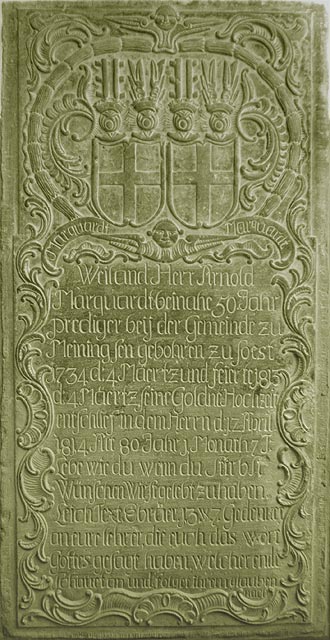 Marquardt Marquardt
Weiland Herr Arnold
Marquardt beinahe 50 Jahr
prediger beij der Gemeinde zu
Meiningsen gebohren zu soest
1734 d: 4 Maertz und feierte 1813
d: 4 Maertz seine Goldne Hochzeit
entschlief in dem Herrn d: 12 April
1814 Alt 80 Jahr 1 Monath 7 T
Lebe wie du wenn du stirbst
Wünschen Wirst gelebt zu haben
Leichtext Ebräer 13 v 7 Gedencket
an eure lehrer, die euch das wort
Gottes gesagt haben welcher ende
schauet an und folget ihrem glauben
nach